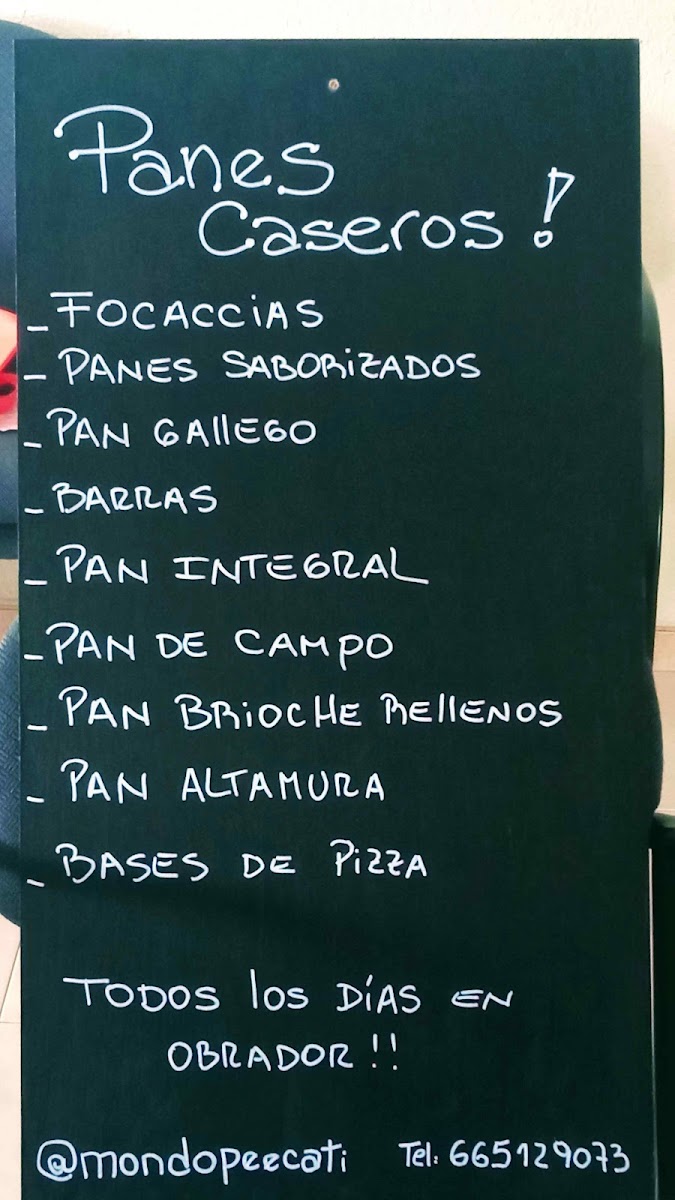 Panes
Caseros!
- FOCACCiAS
- PANES SABORiZADOS
- PAN GAllEGO
- BARRAS
- PAN INTEGRAL
- PAN DE CAMPO
- PAN BRiOCHE RellENOS
- PAN ALTAMURA
- BASES DE PiZZA
TODOS los DÍAS EN
OBRADOR!!
@mondopeecati Tel: 665129073